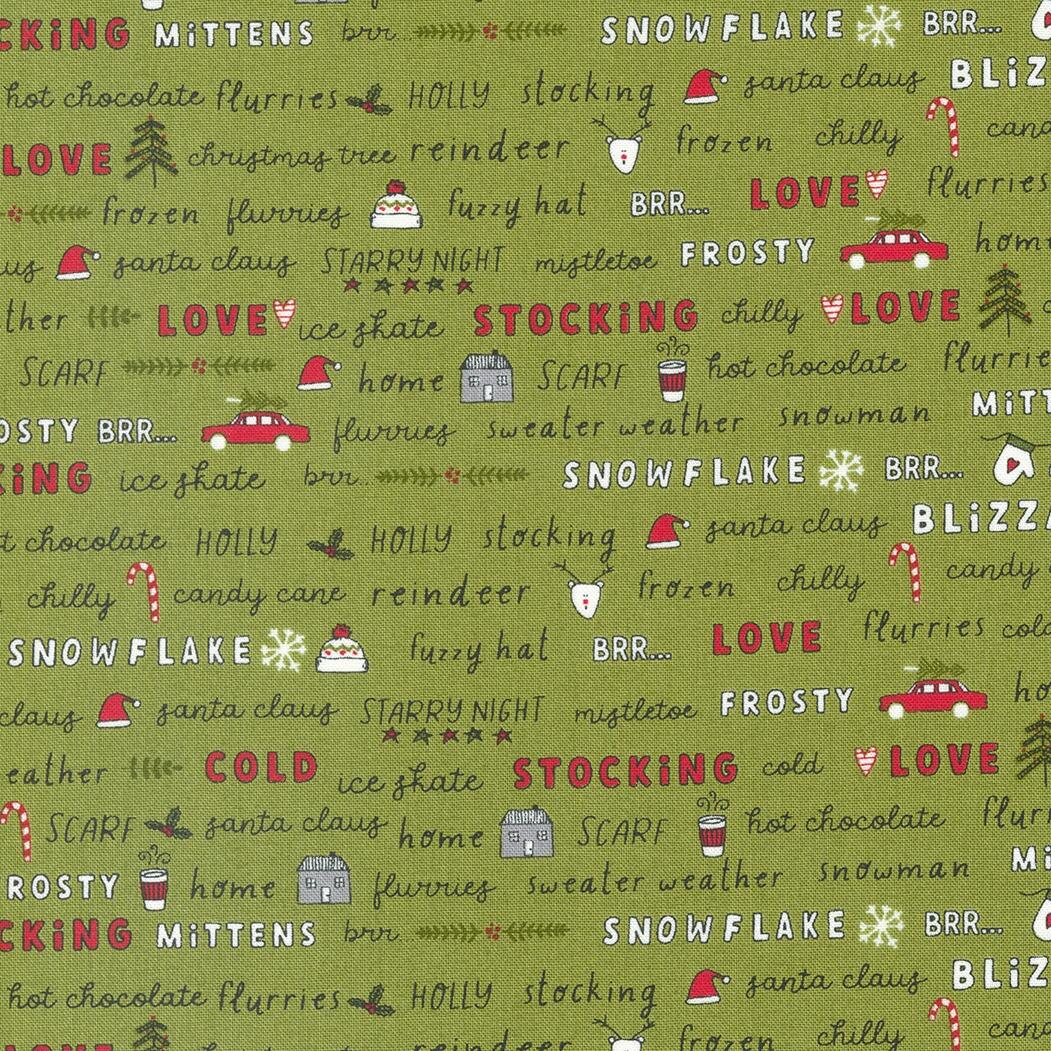 CKiNG MiTTENS brr... SNOWFLAKE BRR...
hot chocolate flurries HOLLY stocking santa claus BLiZ
LOVE christmas tree reindeer frozen chilly cand
frozen flurries fuzzy hat BRR... LOVE flurries
us santa claus STARRY NIGHT mistletoe FROSTY hom
ther LOVE ice skate STOCKiNG chilly LOVE
SCARF home SCARF hot chocolate flurrie
OSTY BRR... flurries sweater weather snowman MiTT
KiNG ice skate brr... SNOWFLAKE BRR...
t chocolate HOLLY HOLLY stocking santa claus BLiZZA
chilly candy cane reindeer frozen chilly candy
SNOWFLAKE fuzzy hat BRR... LOVE flurries cold
claus santa claus STARRY NIGHT mistletoe FROSTY ho
eather COLD ice skate STOCKiNG cold LOVE
SCARF santa claus home SCARF hot chocolate flurr
ROSTY home flurries sweater weather snowman Mi
CKiNG MiTTENS brr... SNOWFLAKE BRR...
hot chocolate flurries HOLLY stocking santa claus BLiZ
LOVE reindeer frozen chilly cand